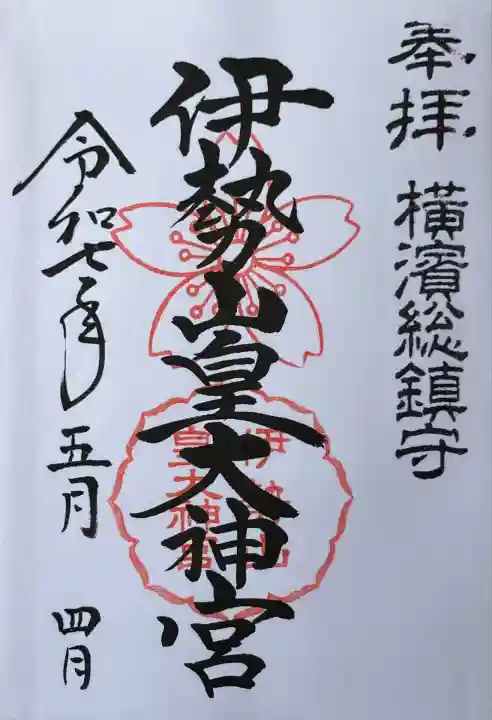 奉拝 横濱総鎮守
伊勢山皇大神宮
伊勢山
皇大神宮
令和七年五月四月